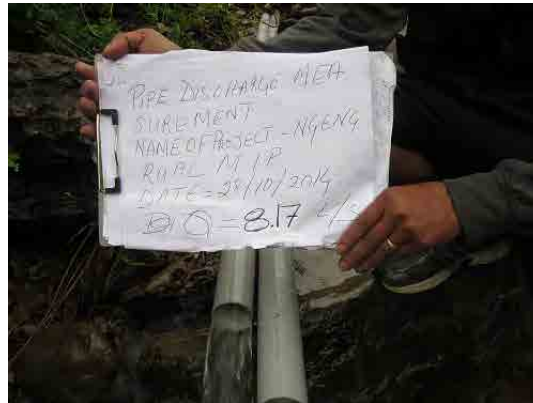 PIPE DISCHARGE MEA
SUREMENT
NAME OF PROJECT - NGENG
RUAL MIP
DATE = 28/10/2014
Q = 8.17 L/S